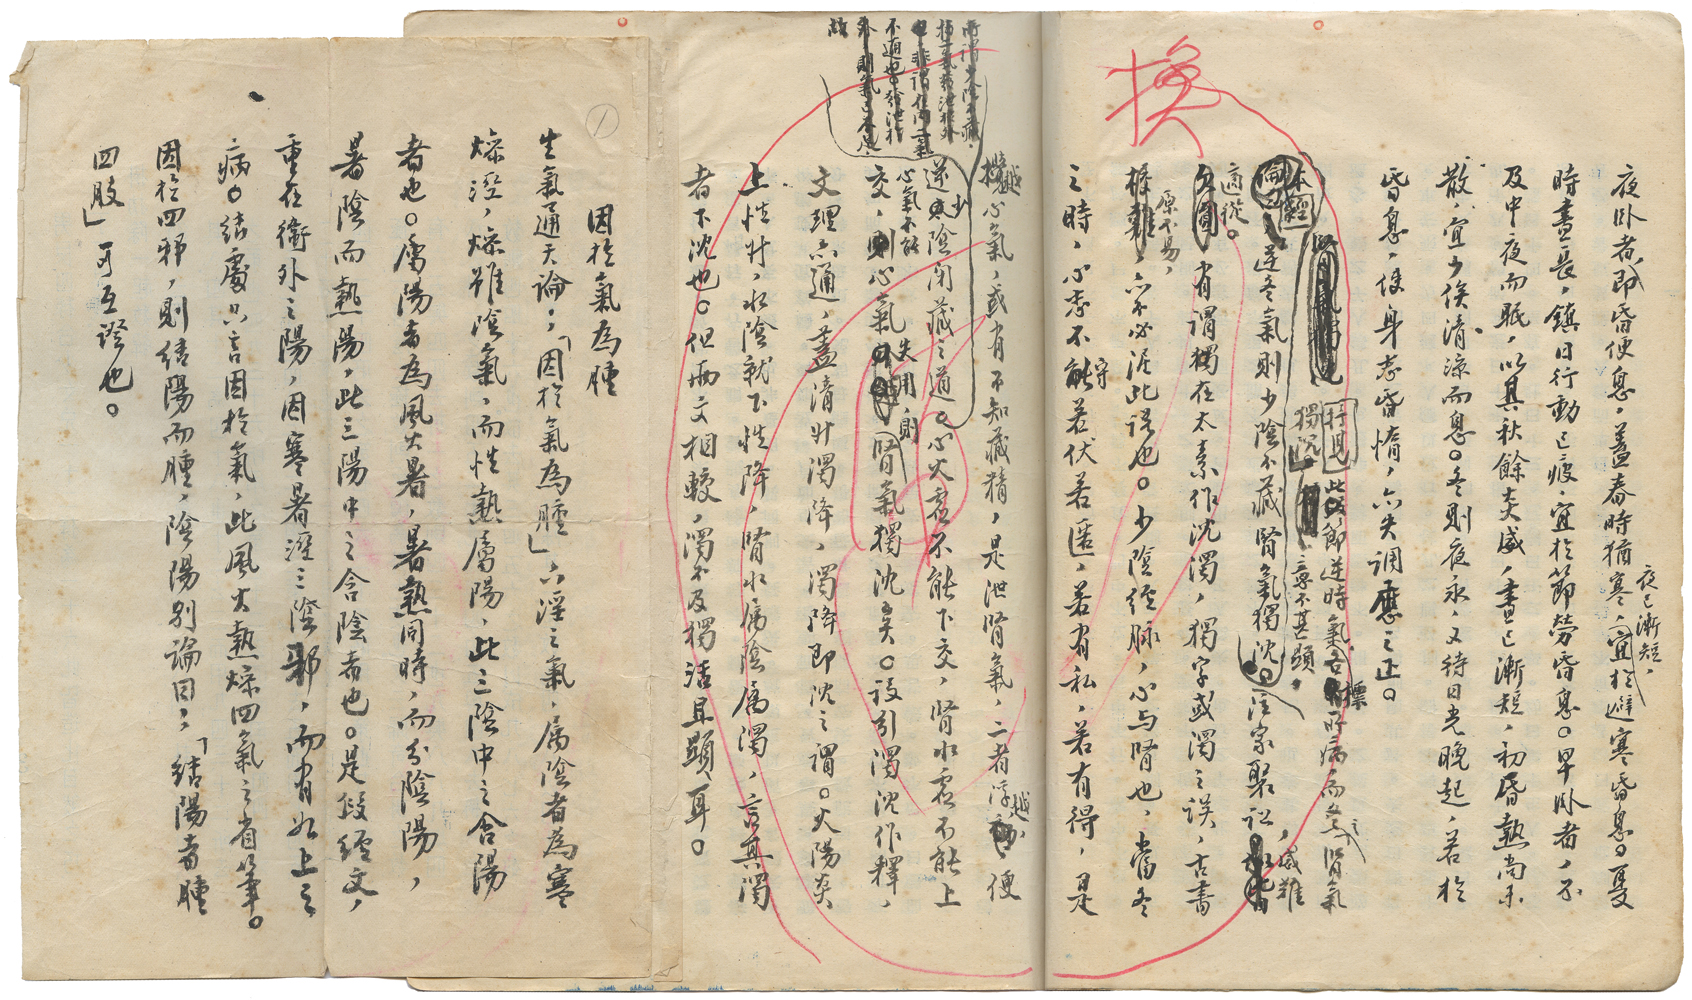 換
夜已漸短，
夜卧者，即昏便息，蓋春時猶寒，宜於避寒昏息。夏
時晝長，鎮日行動已疲，宜於節勞昏息。早卧者，不
及中夜而眠，以其秋餘炎威，晝已漸短，初昏熱尚未
散，宜少俟清涼而息。冬則夜永，又待日光晚起，若於
昏息，使身志昏惰，亦失調應之正。
腎氣
獨沉。
此節逆時氣
標
所病，而冬之腎氣
辜不甚顯，
本經
逆冬氣則少陰不藏腎氣獨沈。注家聚訟，咸難
適從。
有謂獨在太素作沈濁，獨字或濁之誤，古書
原不易，
亦不必泥此誤也。少陰經脉，心与腎也，當冬
之時，心志不能守若伏若匿，若有私，若有得，是
擾越心氣，或有不知藏精，是泄腎氣，二者浮越，便
逆少陰閉藏之道。心火虛不能下交，腎水虛不能上
心氣不能
交，則心氣失用，則腎氣獨沈矣。設引濁沈作釋，
文理亦通，蓋清升濁降，濁降即沈之謂。火陽炎
上性升，水陰就下性降，腎水屬陰屬濁，言其濁
者下沈也。但兩文相較，濁不及獨活且顯耳。
所謂少陰不藏，
不通也
故
1
因於氣為腫
生氣通天論：「因於氣為腫」六淫之氣，屬陰者為寒
燥溼，燥雖陰氣，而性熱屬陽，此三陰中之含陽
者也。屬陽者為風火暑，暑熱同時，而分陰陽，
暑陰而熱陽，此三陽中之含陰者也。是段經文，
重在衛外之陽，因寒暑溼三陰邪，而有如上之
病。結處只言因於氣，此風火熱燥四氣之省筆。
因於四邪，則結陽而腫，陰陽別論曰：「結陽者腫
四肢」可互證也。